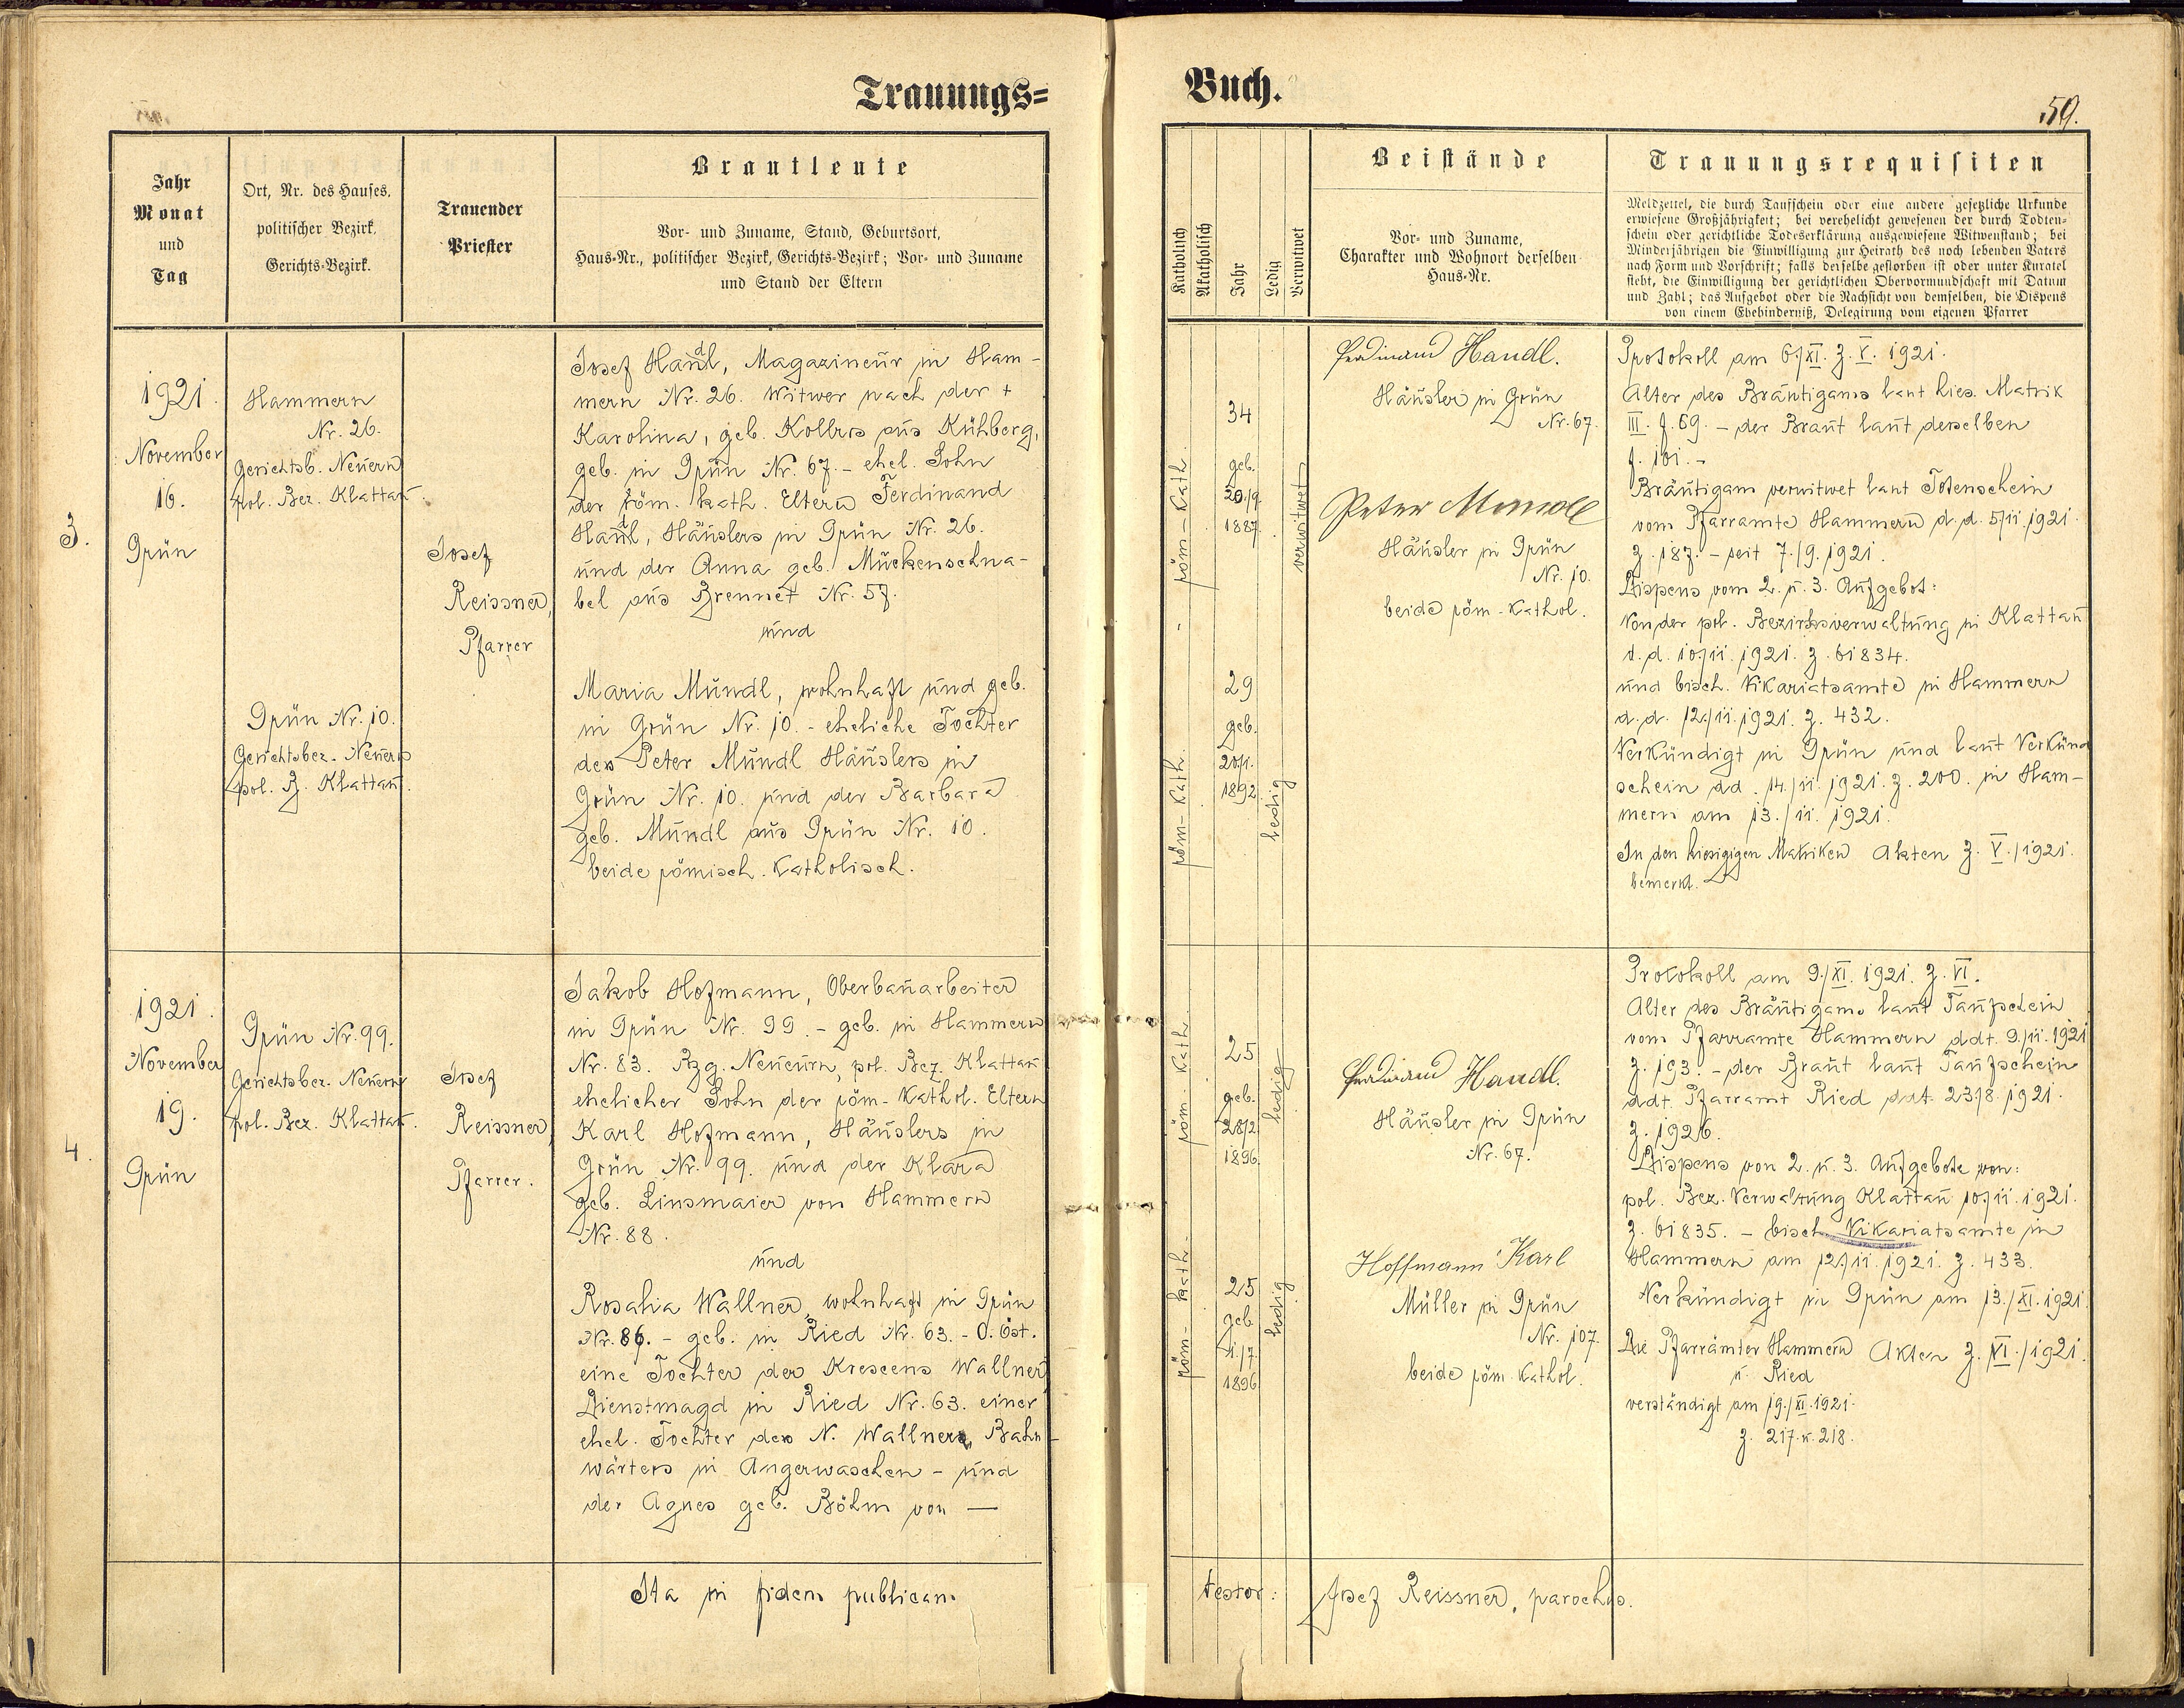 Trauungs=
Jahr
Monat
und
Tag
Ort, Nr. des Hauses,
politischer Bezirk,
Gerichts-Bezirk.
Trauender
Priester
Brautleute
Vor- und Zuname, Stand, Geburtsort,
Haus-Nr., politischer Bezirk, Gerichts-Bezirk; Vor- und Zuname
und Stand der Eltern
3.
1921.
November
16.
Grün
Hammern
Nr. 26.
Gerichtsb. Neuern
pol. Bez. Klattau.
Grün Nr. 10.
Gerichtsbez. Neuern
pol. B. Klattau.
Josef
Reissner,
Pfarrer
Josef Handl, Magazineur in Ham-
mern Nr. 26. Witwer nach der +
Karolina, geb. Kollros aus Kühberg,
geb. in Grün Nr. 67. - ehel. Sohn
der röm. kath. Eltern Ferdinand
Handl, Häuslers in Grün Nr. 26.
und der Anna geb. Mückenschna-
bel aus Brennet Nr. 57.
und
Maria Mundl, wohnhaft und geb.
in Grün Nr. 10. - eheliche Tochter
des Peter Mundl Häuslers in
Grün Nr. 10. und der Barbara
geb. Mundl aus Grün Nr. 10.
beide römisch. Katholisch.
4.
1921.
November
19.
Grün
Grün Nr. 99.
Gerichtsbez. Neuern
pol. Bez. Klattau.
Josef
Reissner,
Pfarrer.
Jakob Hofmann, Oberbauarbeiter
in Grün Nr. 99. - geb. in Hammern
Nr. 83. Bzg. Neueurn, pol. Bez. Klattau
ehelicher Sohn der röm- Kathol. Eltern
Karl Hofmann, Häuslers in
Grün Nr. 99. und der Klara
geb. Linsmaier von Hammern
Nr. 88.
und
Rosalia Wallner, wohnhaft in Grün
Nr. 86. - geb. in Ried Nr. 63. - O. Öst.
eine Tochter der Krescens Wallner
Dienstmagd in Ried Nr. 63. einer
ehel. Tochter des N. Wallners, Bahn-
wärters in Angerwaschen - und
der Agnes geb. Böhm von —
Ita in fidem publicam
Buch.
59.
Katholisch
Akatholisch
Jahr
Ledig
Verwitwet
Beistände
Vor- und Zuname,
Charakter und Wohnort derselben
Haus-Nr.
Trauungsrequisiten
Meldzettel, die durch Taufschein oder eine andere gesetzliche Urkunde
erwiesene Großjährigkeit; bei verehelicht gewesenen der durch Todten-
schein oder gerichtliche Todeserklärung ausgewiesene Witwenstand; bei
Minderjährigen die Einwilligung zur Heirath des noch lebenden Vaters
nach Form und Vorschrift; falls derselbe gestorben ist oder unter Kuratel
stebt, die Einwilligung der gerichtlichen Obervormundschaft mit Datum
und Zahl; das Aufgebot oder die Nachsicht von demselben, die Dispens
von einem Ehebinderniß, Delegirung vom eigenen Pfarrer
röm-Kath.
34
geb.
20./9.
1887.
verwitwet
röm-Kath.
29
geb.
20./1.
1892.
ledig
Ferdinand Handl.
Häusler in Grün
Nr. 67.
Peter Mundl
Häusler in Grün
Nr. 10.
beide röm-Kathol.
Protokoll am 6./XI. Z. V. 1921.
Alter des Bräutigams laut hies. Matrik
III. f. 69. - der Braut laut derselben
f. 101. -
Bräutigam verwitwet laut Totenschein
vom Pfarramte Hammern d. d. 5/11. 1921.
Z. 187. - seit 7./9. 1921.
Dispens vom 2. u. 3. Aufgebot:
Von der pol. Bezirksverwaltung in Klattau
d. d. 10./11. 1921. Z. 61834.
und bisch. Vikariatsamte in Hammern
d. d. 12./11. 1921. Z. 432.
Verkündigt in Grün und laut Verkünd
schein dd. 14./11. 1921. Z. 200. in Ham-
mern am 13./11. 1921.
In den hiesigigen Matriken Akten Z. V./1921.
bemerkt.
röm-Kath.
25
geb.
28/2.
1896.
ledig
röm-kath.
25
geb.
1./7.
1896
ledig
Ferdinand Handl.
Häusler in Grün
Nr. 67.
Hoffmann Karl
Müller in Grün
Nr. 107.
beide röm. Kathol.
Protokoll am 9./XI. 1921. Z. VI.
Alter des Bräutigams laut Taufschein
vom Pfarramte Hammern ddt. 9./11. 1921
Z. 193. - der Braut laut Taufschein
ddt. Pfarramt Ried ddt. 23/8. 1921.
Z. 1926.
Dispens von 2. u. 3. Aufgebote von:
pol. Bez. Verwaltung Klattau 10./11. 1921.
Z. 61835. - bisch. Vikariatsamte in
Hammern am 12./11. 1921. Z. 433.
Verkündigt in Grün am 13./XI. 1921.
Die Pfarrämter Hammern Akten Z. VI./1921.
u. Ried
verständigt am 19./XI. 1921.
Z. 217. u. 218.
testor: Josef Reissner, parochus.